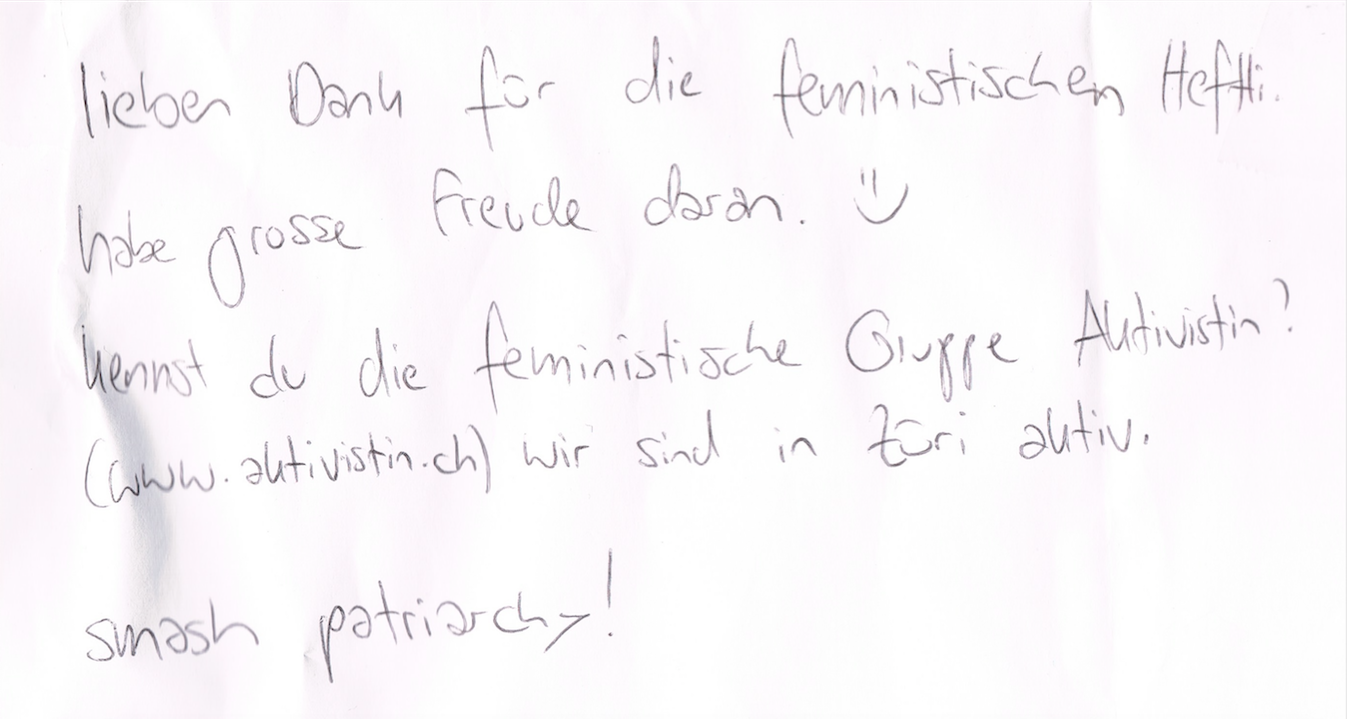 lieben Dank für die feministischen Heftli.
habe grosse Freude daran. :)
kennst du die feministische Gruppe Aktivistin?
(www.aktivistin.ch) wir sind in Züri aktiv.
smash patriarchy!